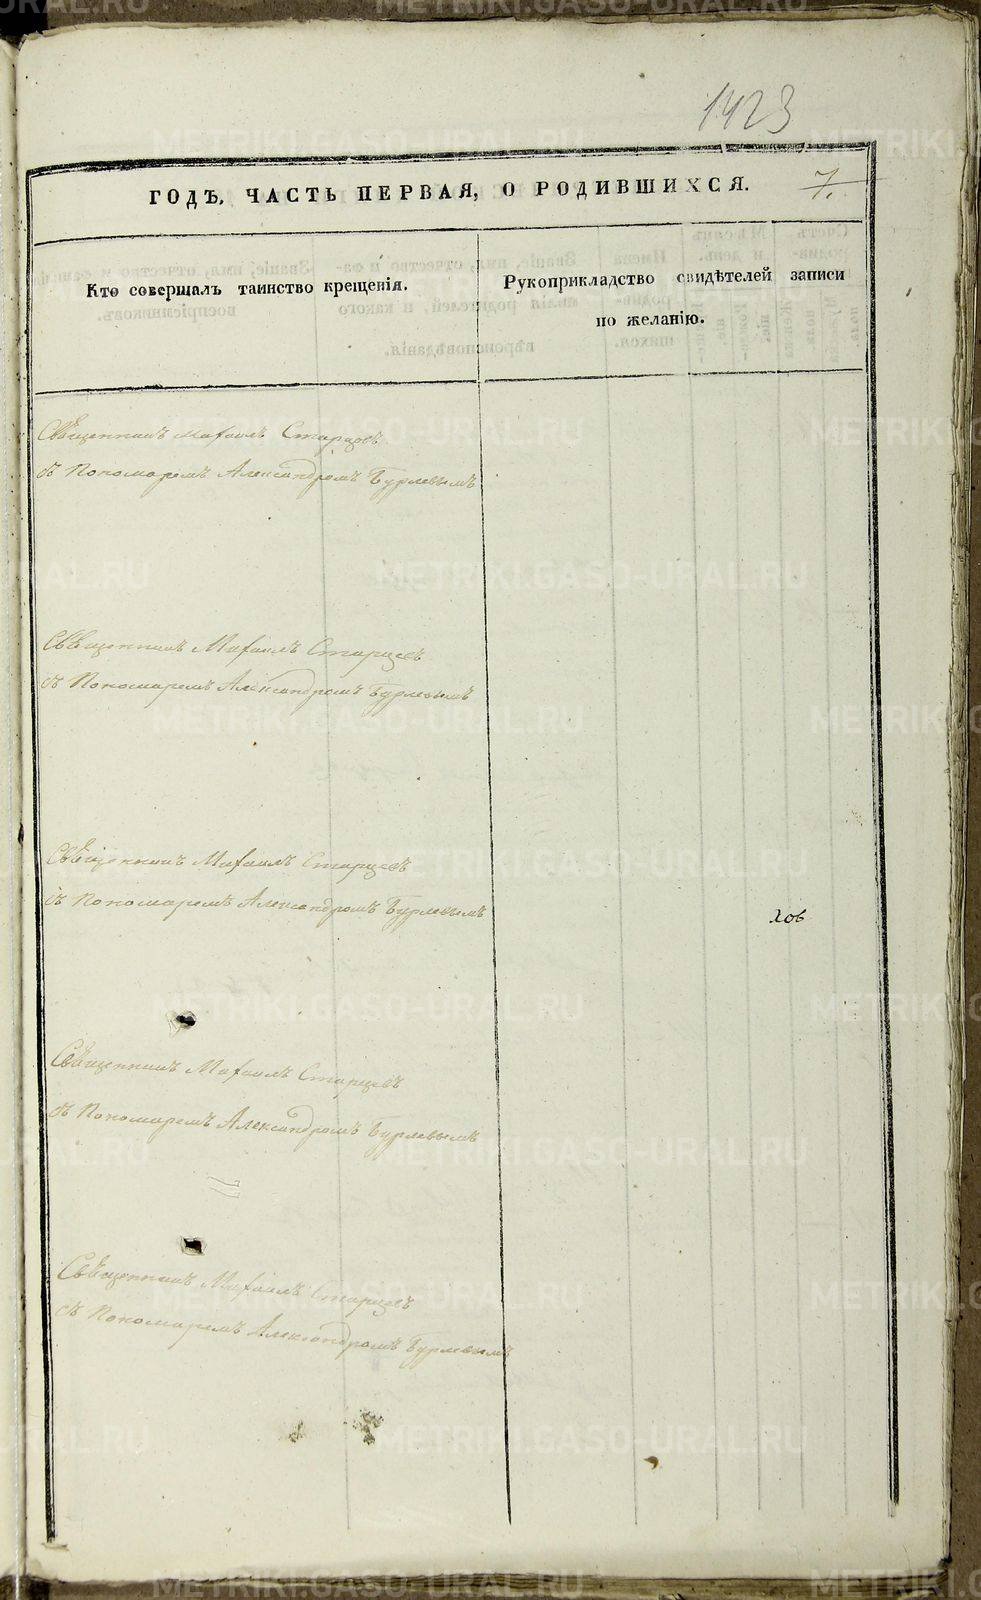 1423
ГОДЪ, ЧАСТЬ ПЕРВАЯ, О РОДИВШИХСЯ.
7.
Кто совершалъ таинство крещенія.
Рукоприкладство свидѣтелей записи
по желанію.
Священникъ Михаилъ Старцевъ
съ Пономаремъ Александромъ Бурлевымъ
Священникъ Михаилъ Старцевъ
съ Пономаремъ Александромъ Бурлевымъ
Священникъ Михаилъ Старцевъ
съ Пономаремъ Александромъ Бурлевымъ
хов
Священникъ Михаилъ Старцевъ
съ Пономаремъ Александромъ Бурлевымъ
Священникъ Михаилъ Старцевъ
съ Пономаремъ Александромъ Бурлевымъ
METRIKI.GASO-URAL.RU